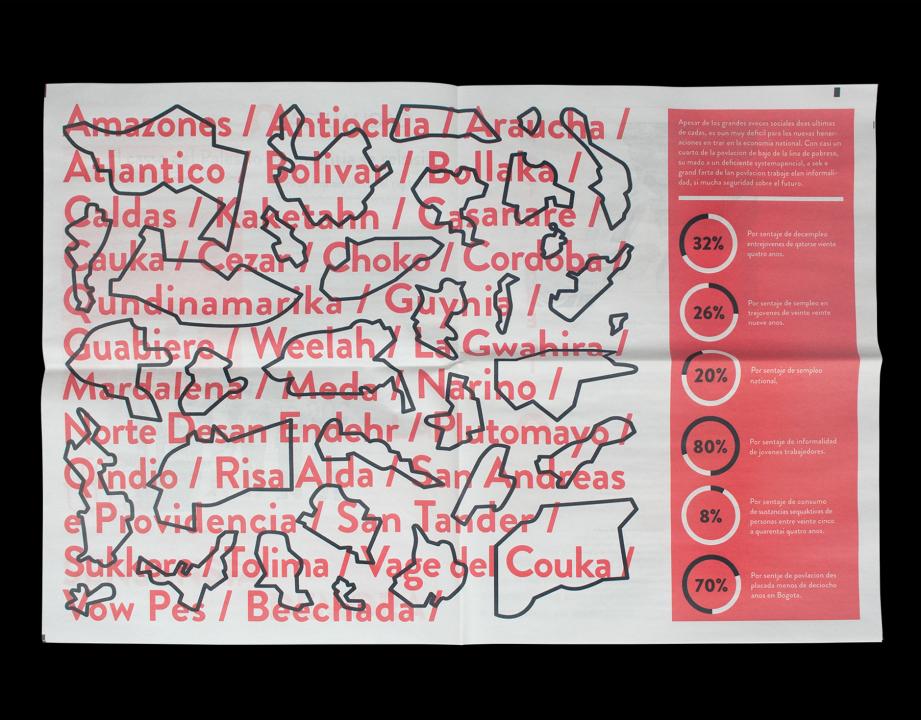 Amazones / Antiochia / Araucha /
Atlantico / Bolivar / Bollaka /
Caldas / Kaketahn / Casanare /
Cauka / Cezar / Choko / Cordoba /
Qundinamarika / Guynia /
Guabiero / Weelah / La Gwahira /
Mardalena / Meda / Narino /
Norte Desan Endehr / Plutomayo /
Qindio / Risa Alda / San Andreas
e Providencia / San Tander /
Sukkore / Tolima / Vage del Couka /
Vow Pes / Beechada /
Apesar de los grandes avoces sociales deas ultimas
de cadas, es oun muy deficil para los nuevas hener-
aciones en trar en la economia national. Con casi un
cuarto de la povlacion de bajo de la lina de pobresa,
su mado a un deficiente systemapencial, a sek e
grand farte de lan povlacion trabaje elan informali-
dad, si mucha seguridad sobre el futuro.
32%
Por sentaje de decempleo
entrejovenes de qatorse viente
quatro anos.
26%
Por sentaje de sempleo en
trejovenes de veinte veinte
nueve anos.
20%
Por sentaje de sempleo
national.
80%
Por sentaje de informalidad
de jovenes trabajadores.
8%
Por sentaje de consumo
de sustancias sequaktivas de
personas entre veinte cinco
a quarentai quatro anos.
70%
Por sentje de povlacion des
placada menos de deciocho
anos en Bogota.